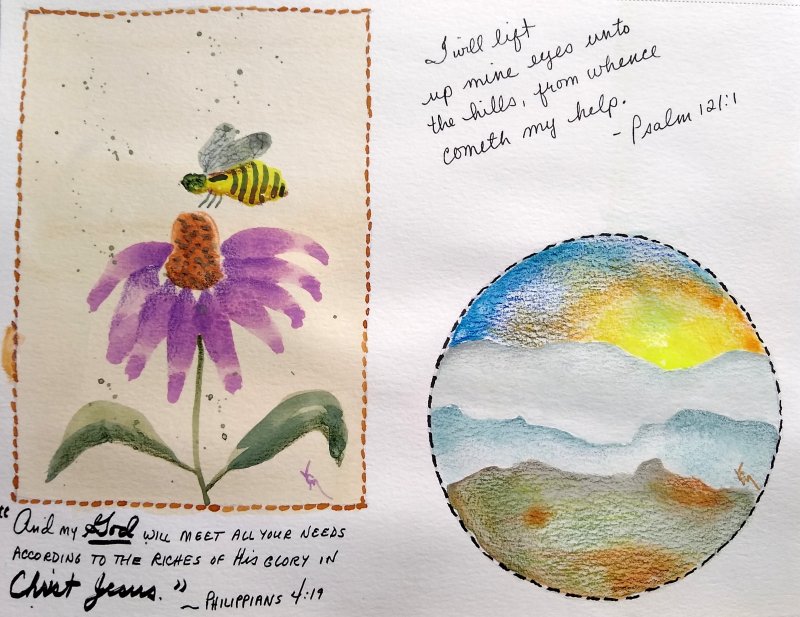 I will lift
up mine eyes unto
the hills, from whence
cometh my help.
- Psalm 121:1
"And my God will meet all your needs
according to the riches of His glory in
Christ Jesus."
~ Philippians 4:19